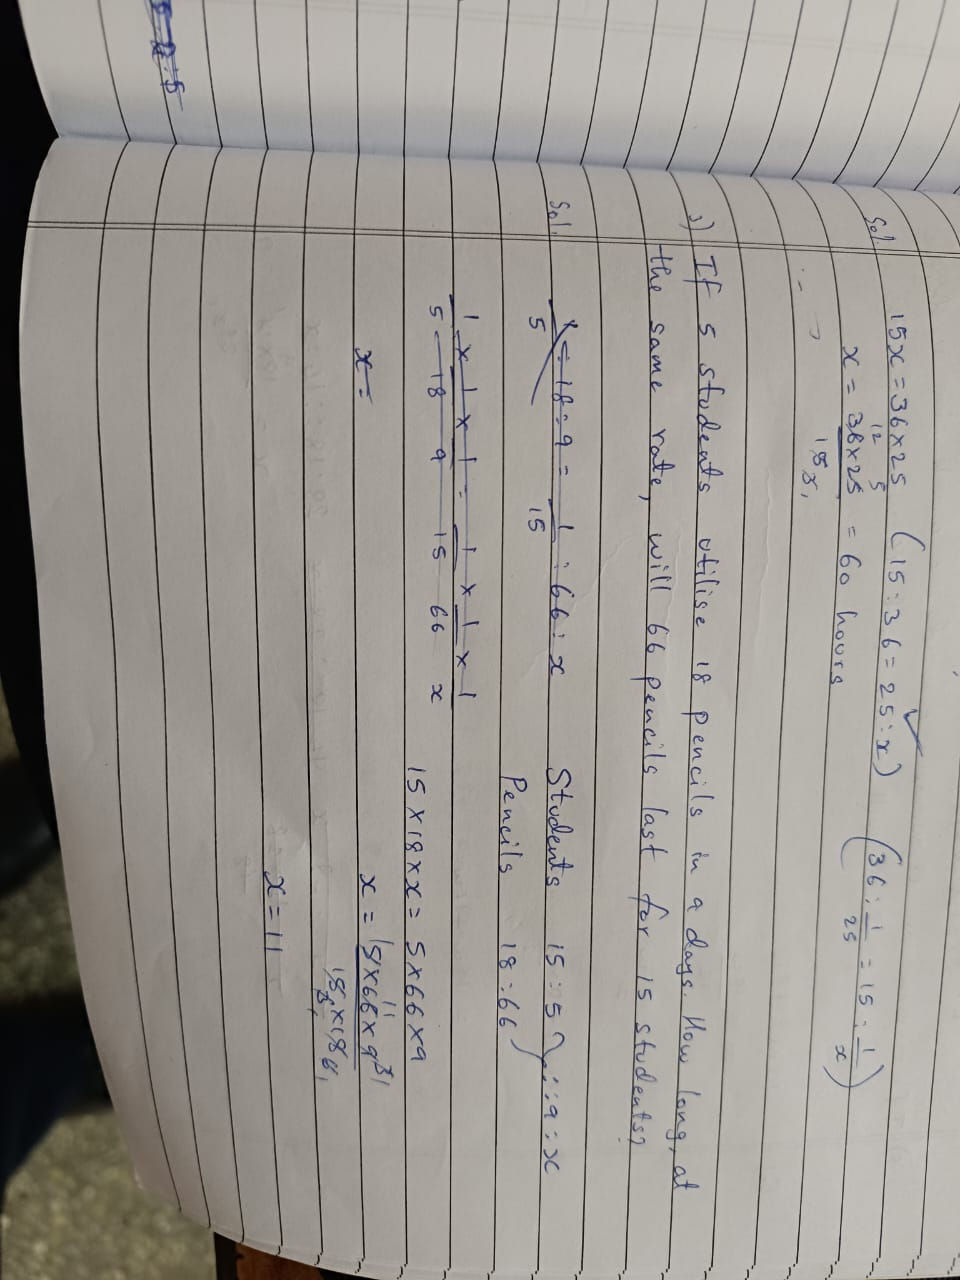 15x = 36 × 25 (15 : 36 = 25 : x) ✓ (36 : 1/25 = 15 : 1/x)
Sol.
12 5
x = 36 × 25 / 15 5 1 = 60 hours
3) If 5 students utilise 18 pencils in 9 days. How long, at
the same rate, will 66 pencils last for 15 students?
Sol. 1/5 : 18 : 9 = 1/15 : 66 : x
Students 15 : 5 } : : 9 : x
Pencils 18 : 66
1/5 × 1/18 × 1/9 = 1/15 × 1/66 × 1/x
15 × 18 × x = 5 × 66 × 9
x =
x = 5 × 66 × 9 / 15 × 18
x = 11